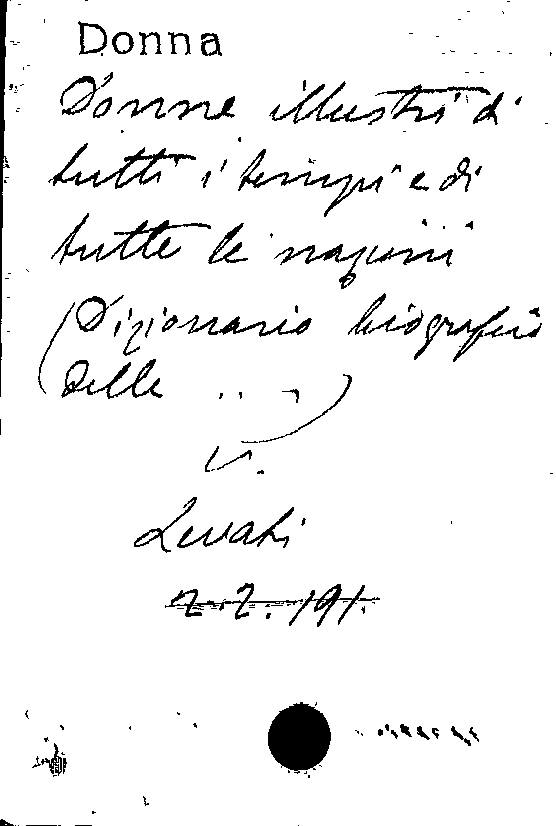 Donna
Donne illustri di
tutti i tempi e di
tutte le nazioni
(Dizionario biografico
delle .. )
V.
Levati
2.2.191.